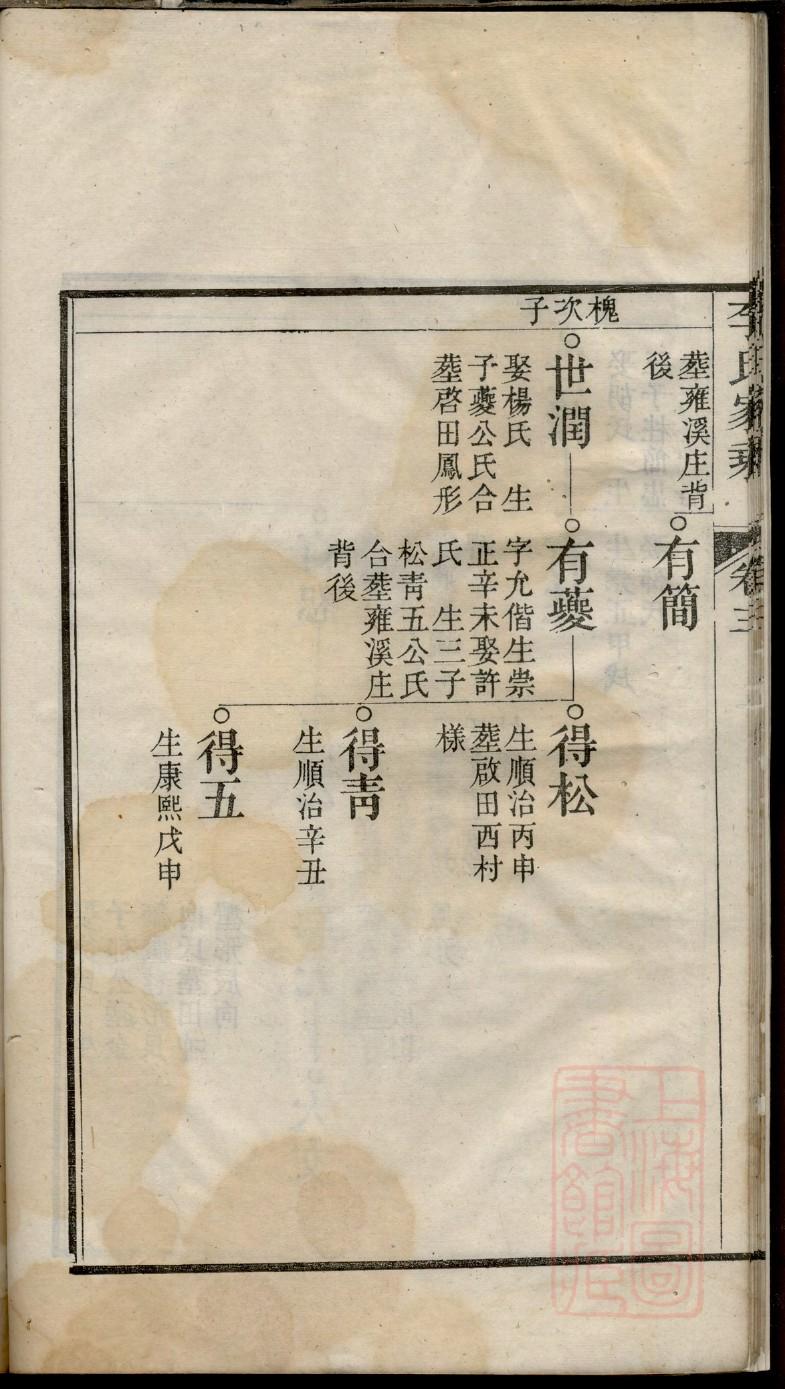 李氏家乘
卷三
塟雍溪庄背
後
有簡
槐次子
世潤
娶楊氏 生
子䕫公氏合
塟啓田鳳形
有䕫
字允偕生崇
正辛未娶許
氏 生三子
松青五公氏
合塟雍溪庄
背後
得松
生順治丙申
塟啟田西村
樣
得青
生順治辛丑
得五
生康熙戊申
上海圖
書館藏